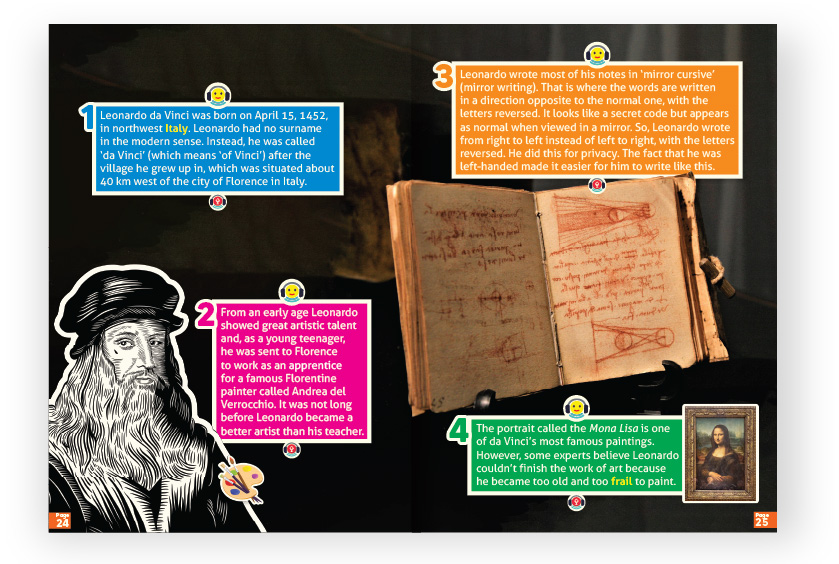 1
Leonardo da Vinci was born on April 15, 1452,
in northwest Italy. Leonardo had no surname
in the modern sense. Instead, he was called
‘da Vinci’ (which means ‘of Vinci’) after the
village he grew up in, which was situated about
40 km west of the city of Florence in Italy.
2
From an early age Leonardo
showed great artistic talent
and, as a young teenager,
he was sent to Florence
to work as an apprentice
for a famous Florentine
painter called Andrea del
Verrocchio. It was not long
before Leonardo became a
better artist than his teacher.
Page
24
3
Leonardo wrote most of his notes in ‘mirror cursive’
(mirror writing). That is where the words are written
in a direction opposite to the normal one, with the
letters reversed. It looks like a secret code but appears
as normal when viewed in a mirror. So, Leonardo wrote
from right to left instead of left to right, with the letters
reversed. He did this for privacy. The fact that he was
left-handed made it easier for him to write like this.
4
The portrait called the Mona Lisa is one
of da Vinci’s most famous paintings.
However, some experts believe Leonardo
couldn’t finish the work of art because
he became too old and too frail to paint.
Page
25